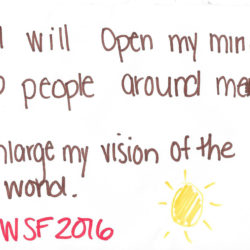 I will Open my min
o people around me
nlarge my vision of the
world.
WSF2016